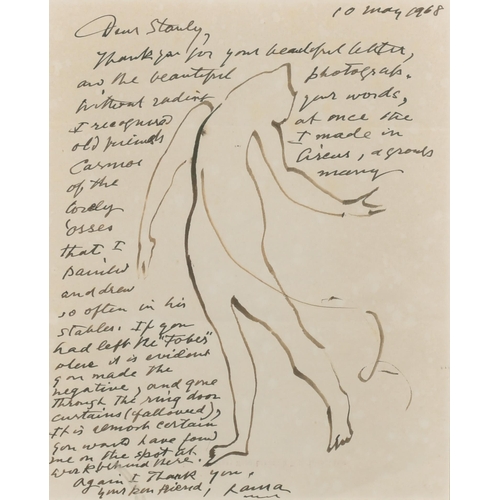 10 may 1968
Dear Stanly,
Thank you for your beautiful letter,
and the beautiful photograph.
Without reading your words,
I recognised at once the
old friends I made in
Carmos Circus, a group
of the many
lovely
'osses
that I
painted
and drew
so often in his
stables. If you
had left the "Tober"
where it is evident
you made the
negative, and gone
through the ring door
curtains (if allowed),
it is almost certain
you would have found
me on the spot at
work behind there.
Again I thank you.
Your pen friend, Laura